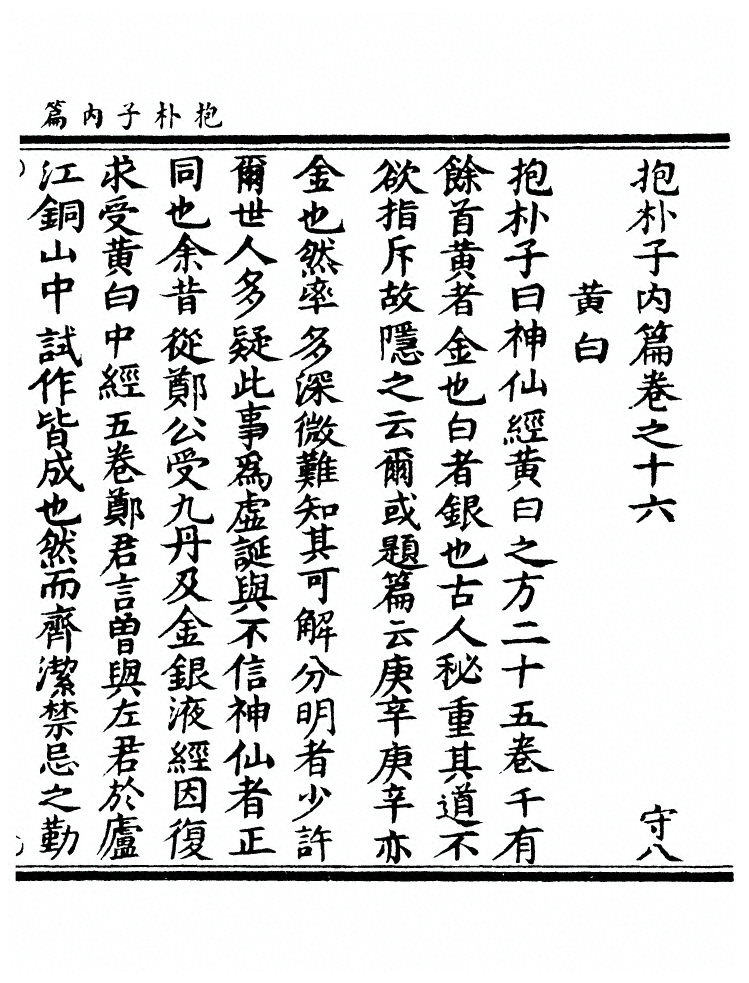 抱朴子内篇
抱朴子内篇卷之十六
守八
黄白
抱朴子曰神仙經黄白之方二十五卷千有
餘首黄者金也白者銀也古人秘重其道不
欲指斥故隱之云爾或題篇云庚辛庚辛亦
金也然率多深微難知其可解分明者少許
爾世人多疑此事爲虛誕與不信神仙者正
同也余昔從鄭公受九丹及金銀液經因復
求受黄白中經五卷鄭君言曽與左君於廬
江銅山中試作皆成也然而齊潔禁忌之勤